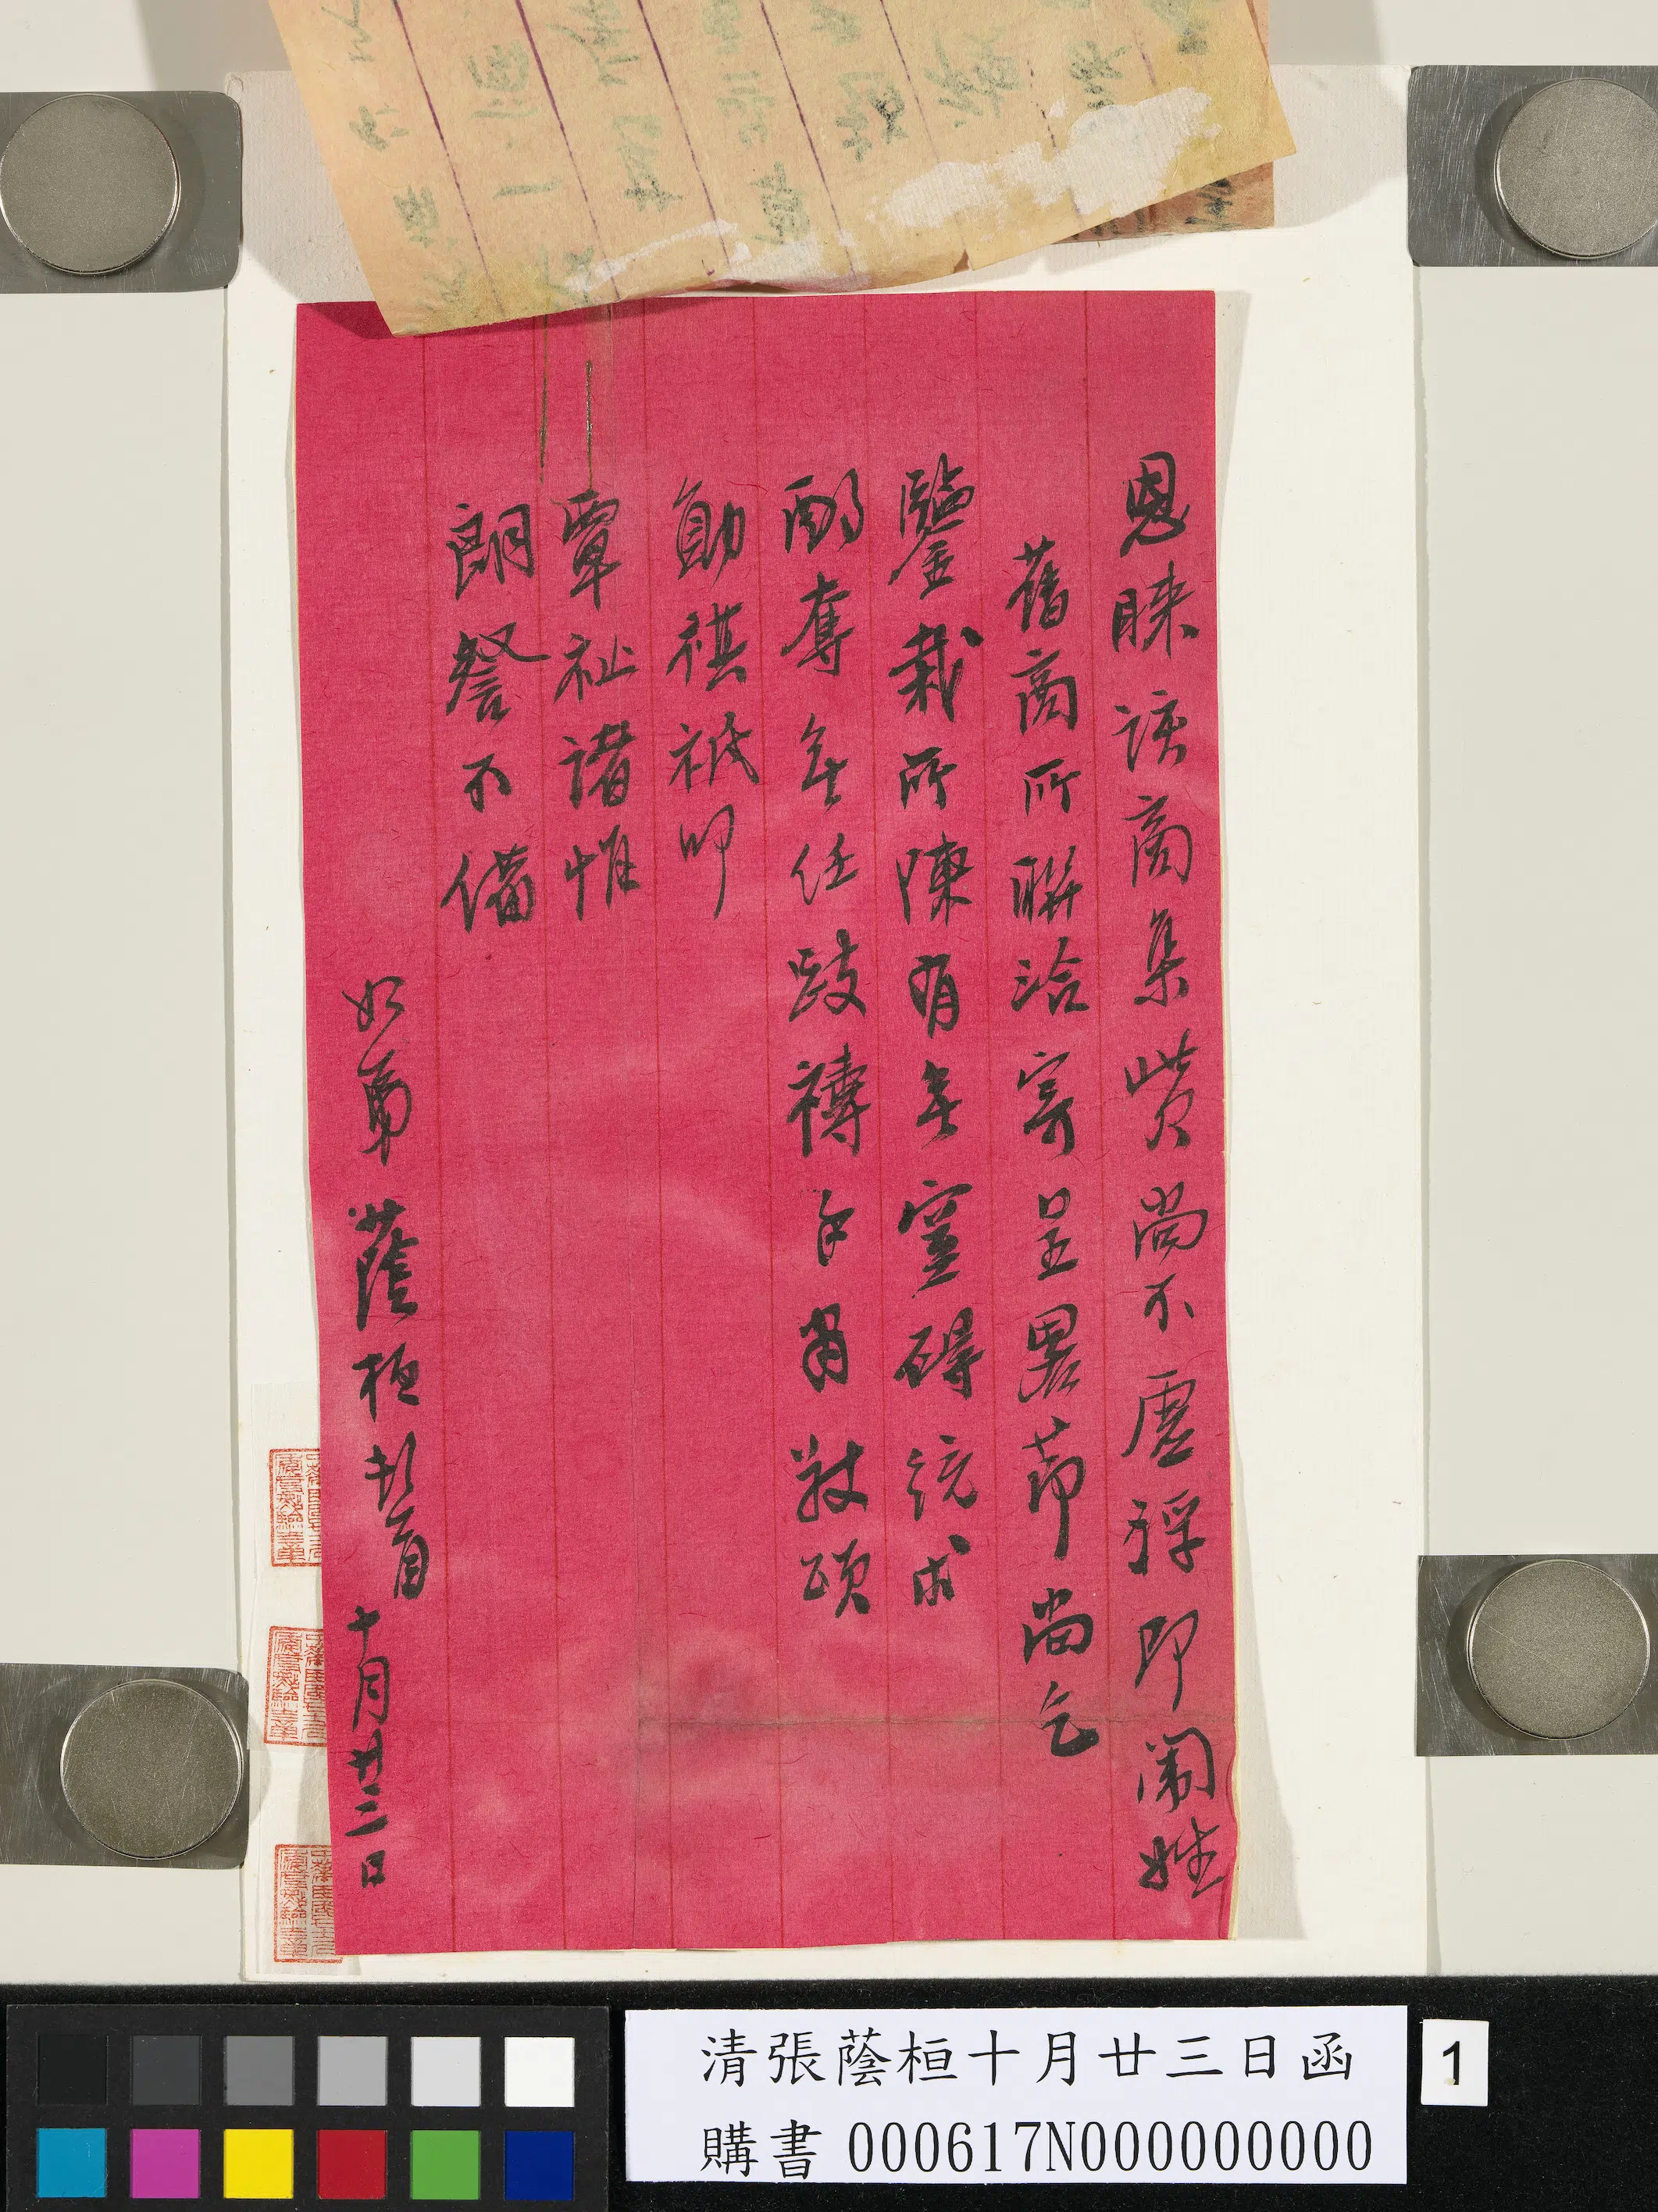 恩睞該商集貲尚不虛浮即闈姓
舊商所聯洽寄呈畧節尚乞
鑒裁所陳有無窒碍統求
酌奪無任跂禱手肅敬頌
勛祺祗叩
覃祉諸惟
朗詧不備
如弟蔭桓頓首十月廿三日
清張蔭桓十月廿三日函
購書000617N000000000
1